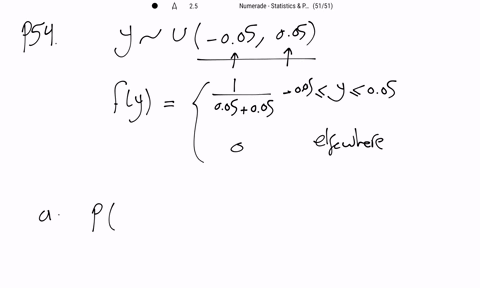 2.5 Numerade - Statistics & P... (51/51)
P54. y ~ U(-0.05, 0.05)
f(y) = { 1 / 0.05 + 0.05 -0.05 ≤ y ≤ 0.05
0 elsewhere
a. P(